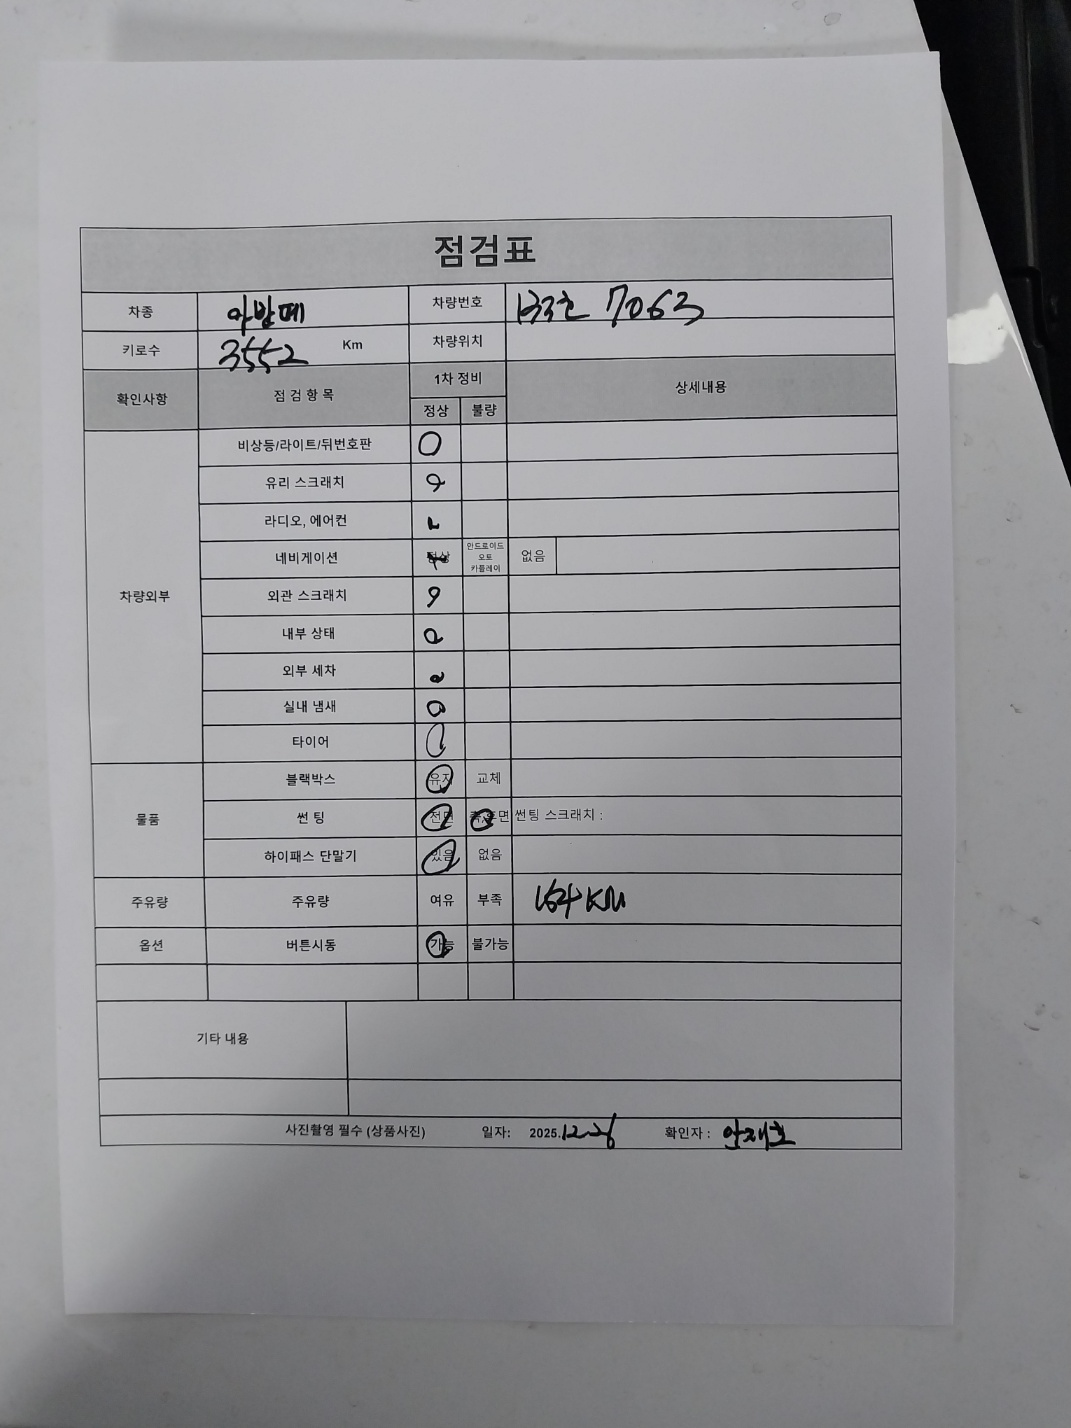 점검표
차종 아반떼 차량번호 7063
키로수 3552 Km 차량위치
확인사항 점 검 항 목 1차 정비 상세내용
정상 불량
차량외부 비상등/라이트/뒤번호판 O
유리 스크래치
라디오, 에어컨
네비게이션 정상 안드로이드 오토 카플레이 없음
외관 스크래치
내부 상태
외부 세차
실내 냄새
타이어
물품 블랙박스 유지 교체
썬 팅 전면 측,후면 썬팅 스크래치 :
하이패스 단말기 있음 없음
주유량 주유량 여유 부족 164KM
옵션 버튼시동 가능 불가능
기타 내용
사진촬영 필수 (상품사진) 일자: 2025.12-26 확인자 : 안재호